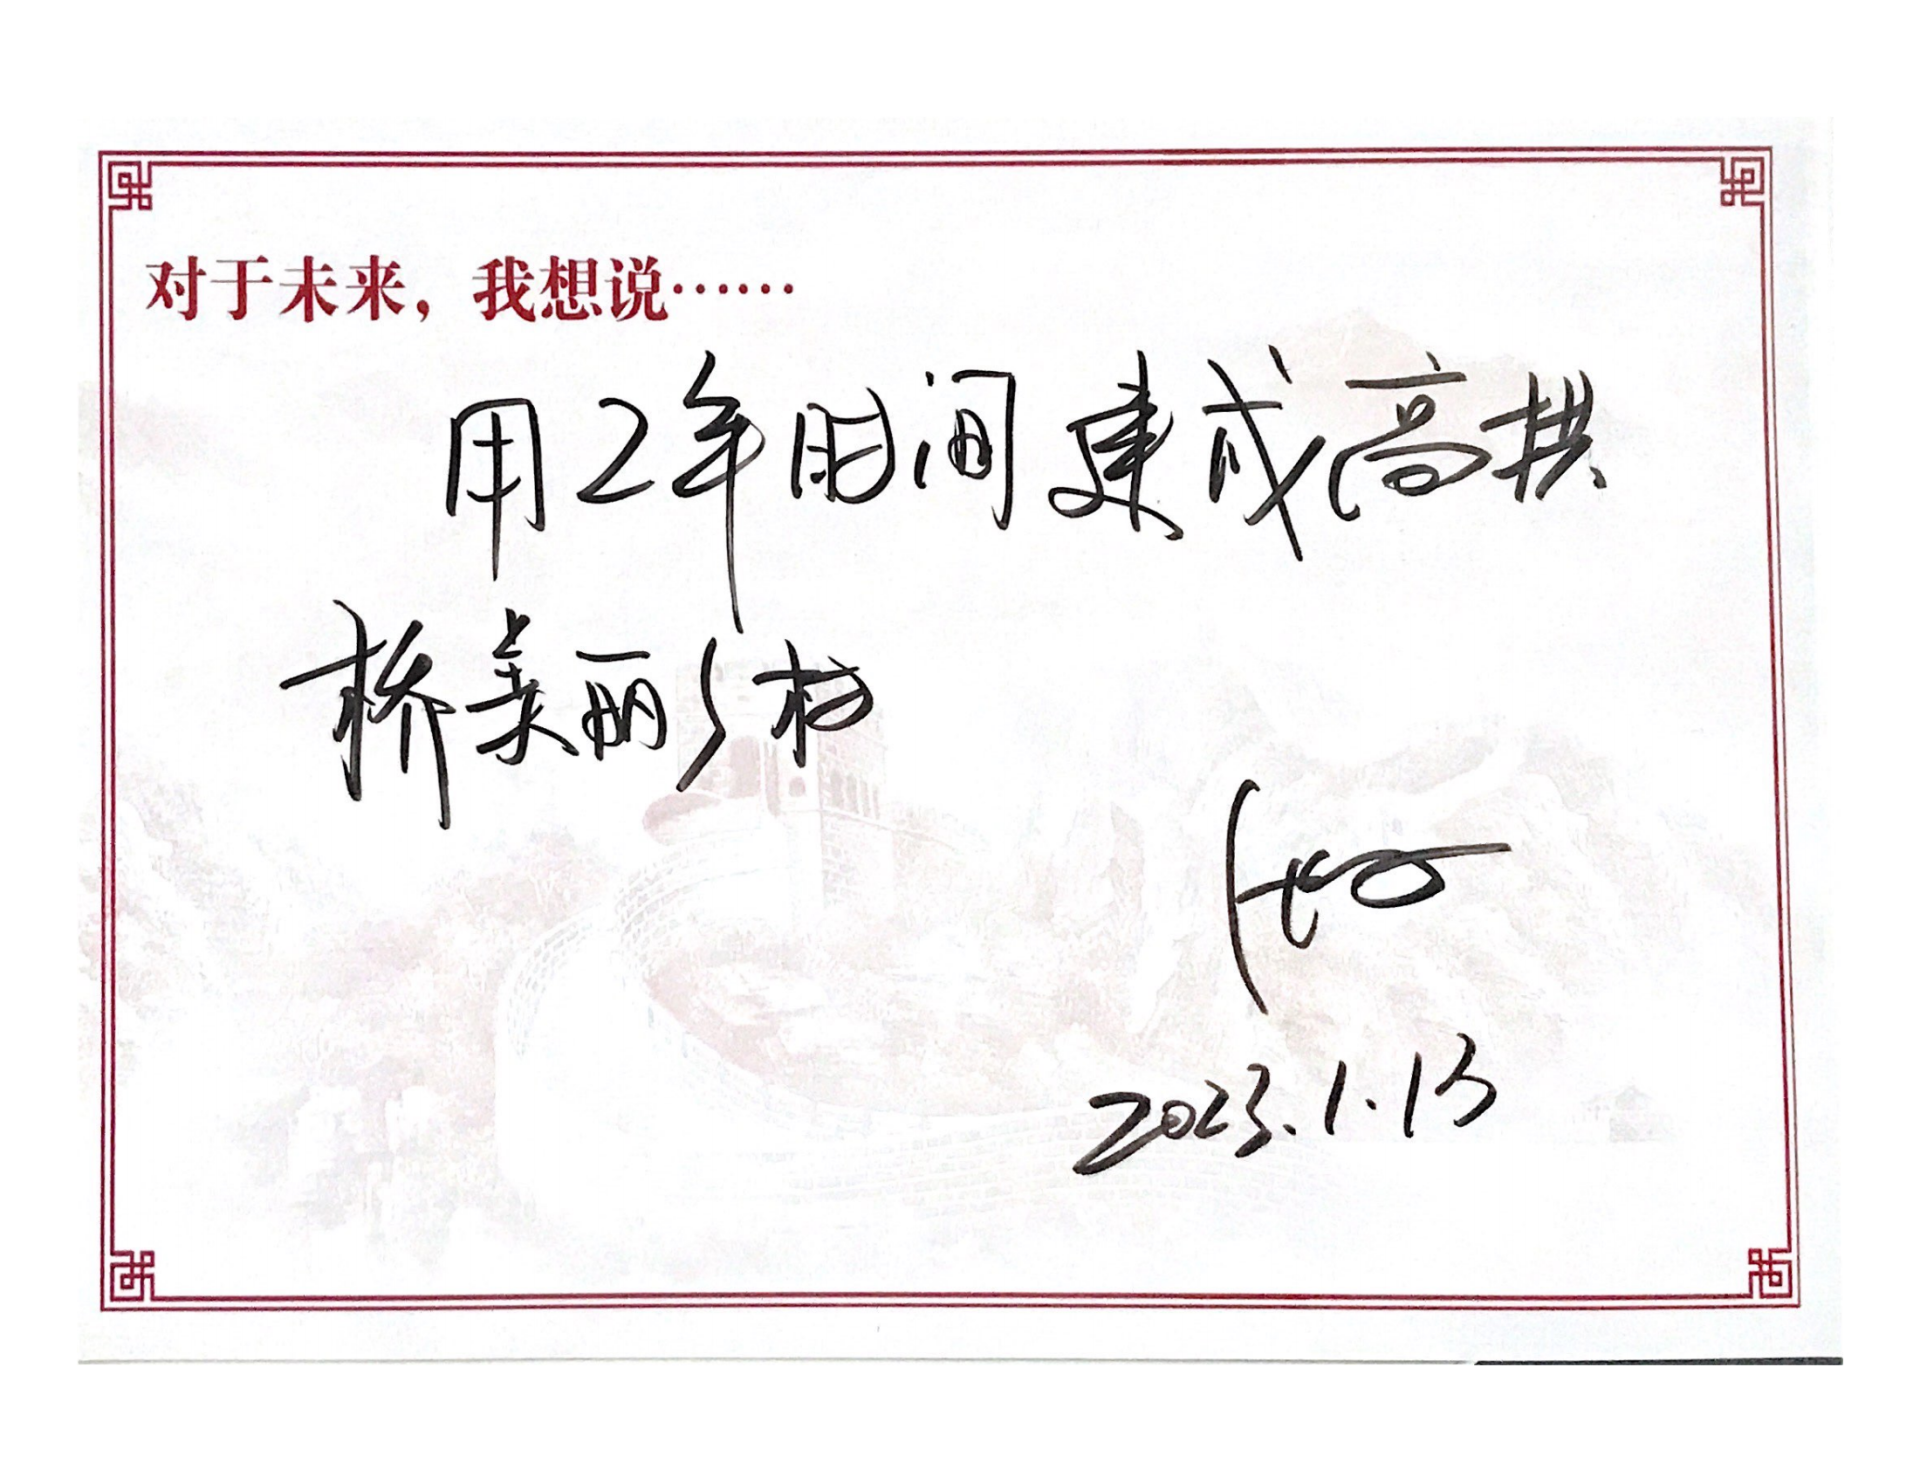 对于未来，我想说……
用2年时间建成高拱
桥美丽乡村
2023.1.13